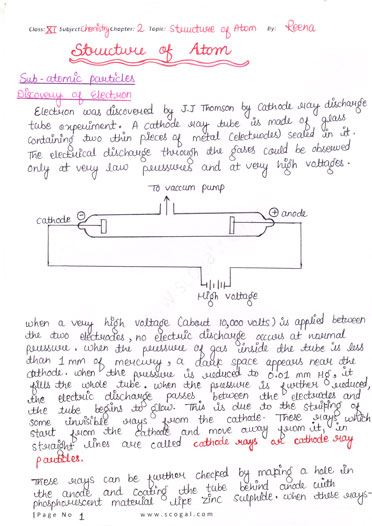 Class: XI Subject: Chemistry Chapter: 2 Topic: Structure of Atom By: Reena
Structure of Atom
Sub-atomic particles
Discovery of Electron
Electron was discovered by J.J Thomson by Cathode ray discharge
tube experiment. A cathode ray tube is made of glass
containing two thin pieces of metal (electrodes) sealed in it.
The electrical discharge through the gases could be observed
only at very low pressures and at very high voltages.
To vaccum pump
cathode
anode
High voltage
When a very high voltage (about 10,000 volts) is applied between
the two electrodes, no electric discharge occurs at normal
pressure. When the pressure of gas inside the tube is less
than 1 mm of mercury, a dark space appears near the
cathode. When the pressure is reduced to 0.01 mm Hg, it
fills the whole tube. When the pressure is further reduced,
the electric discharge passes between the electrodes and
the tube begins to glow. This is due to the striping of
some invisible rays from the cathode. These rays which
start from the cathode and move away from it, in
straight lines are called cathode rays or cathode ray
particles.
These rays can be further checked by making a hole in
the anode and coating the tube behind anode with
phosphorescent material like zinc sulphide. When these rays-
|Page No 1
www.scogal.com